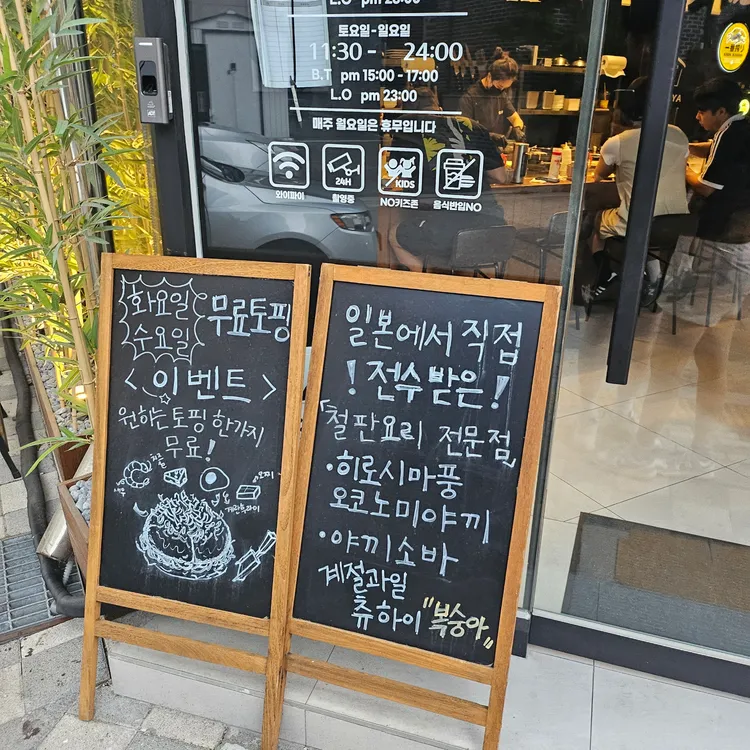 L.O pm 23:00
토요일-일요일
11:30 - 24:00
B.T pm 15:00 - 17:00
L.O pm 23:00
매주 월요일은 휴무입니다
24H
KIDS
와이파이 촬영중 NO키즈존 음식반입NO
화요일
수요일
무료토핑
<이벤트>
원하는 토핑 한가지
무료!
치즈
새우
모찌
계란후라이
일본에서 직접
!전수 받은!
「철판요리 전문점」
·히로시마풍
오코노미야끼
·야끼소바
계절과일
츄하이 "복숭아"